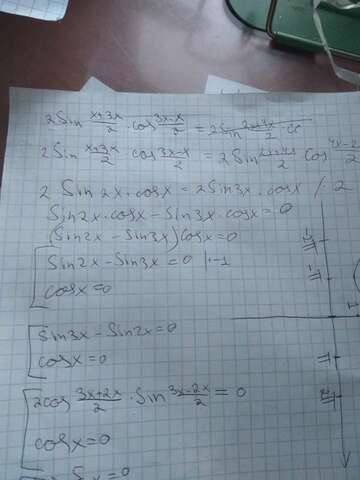 2Sin x+3x/2 · cos 3x-x/2 = 2Sin 2x+4x/2 · cos
2Sin x+3x/2 cos 3x-x/2 = 2Sin 2x+4x/2 cos 4x-2
2 Sin2x · cosx = 2Sin3x · cosx /: 2
Sin2x · cosx - Sin3x · cosx = 0
(Sin2x - Sin3x) cosx = 0
[Sin2x - Sin3x = 0 | · -1
cosx = 0
[Sin3x - Sin2x = 0
cosx = 0
[2cos 3x+2x/2 · Sin 3x-2x/2 = 0
cosx = 0